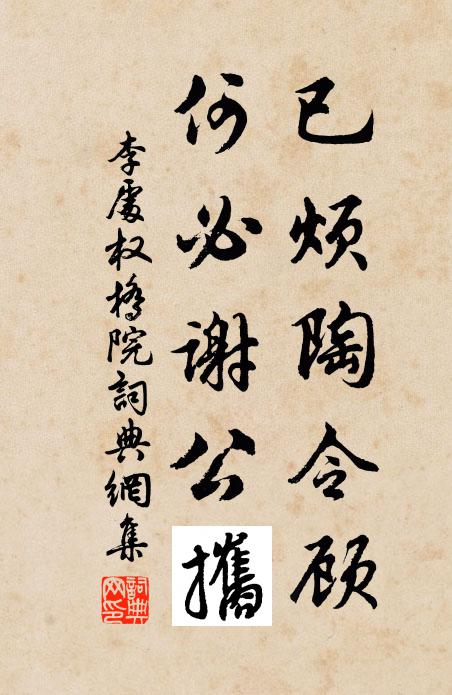 已烦陶令顾
何必谢公攜
李處权橋院詞典網集
詞典网印